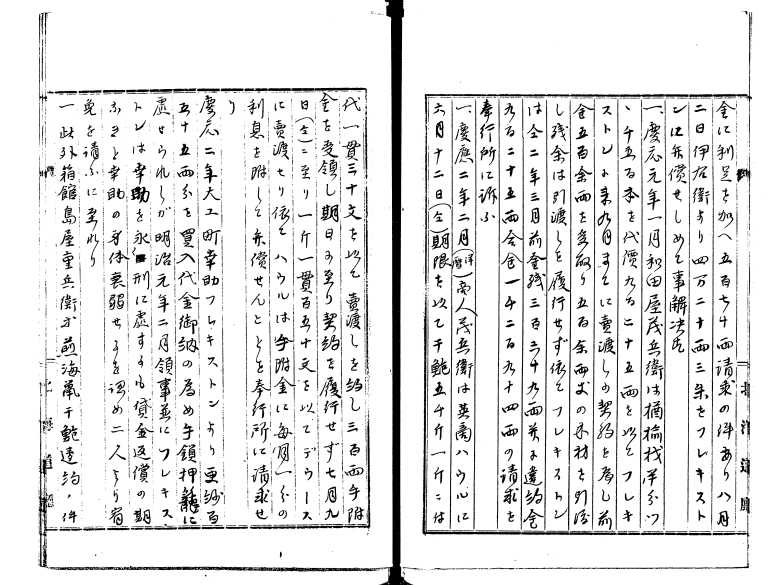 金に利足を加へ五百七十四両請求の件あり八月
二日伊右衛より四万二十両三朱をフレキスト
ンに弁償せしめて事解决
一、慶応元年一月和田屋茂兵衛は楢檜板
千五百本を代價九百二十五両を以てフレキ
ストンに来九月までに賣渡しの契約を為し前
金五百余両を受取り五百余両丈の木材を引渡
し残余は引渡しを履行せず依てフレキストン
は仝二年三月前金残三百三十九両并に違約金
九百二十五両合金一千二百九十四両の請求を
奉行所に訴ふ
一、慶應二年二月(洋暦)商人茂兵衛は英商ハウルに
六月十二日(仝)期限を以て干鮑五千斤一斤に付
代一貫三十文を以て賣渡しを約し三百両手附
金を受領し期日に至り契約を履行せず七月九
日(仝)に至り一斤一貫百五十文を以てデウース
に賣渡せり依てハウルは手附金に毎月一分の
利息を附して弁償せんことを奉行所に請求せ
り
慶応二年大工町幸助フレキストンより更紗百
五十五両分を買入代金御納の為め手鎖押籠に
處せられしが明治元年二月領事並にフレキス
トンは幸助を永刑に處するも貸金返償の期
なきと幸助の身体衰弱せるを認め二人より宥
免を請ふに至れり
一此外箱館島屋重兵衛が煎海鼠干鮑違約ノ件